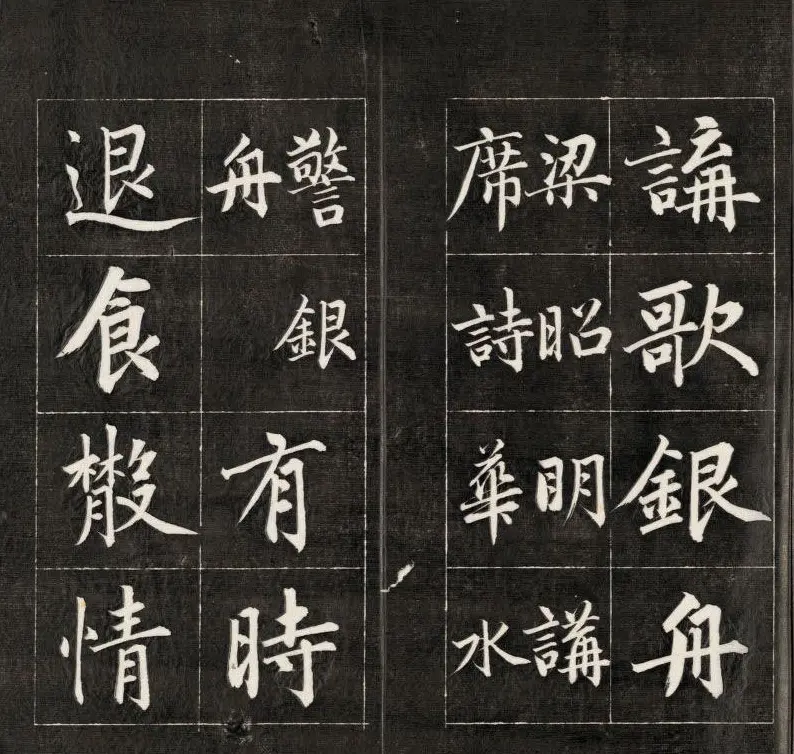 講歌銀舟
梁昭明講
席詩華水
警銀
舟
有時
退食散情